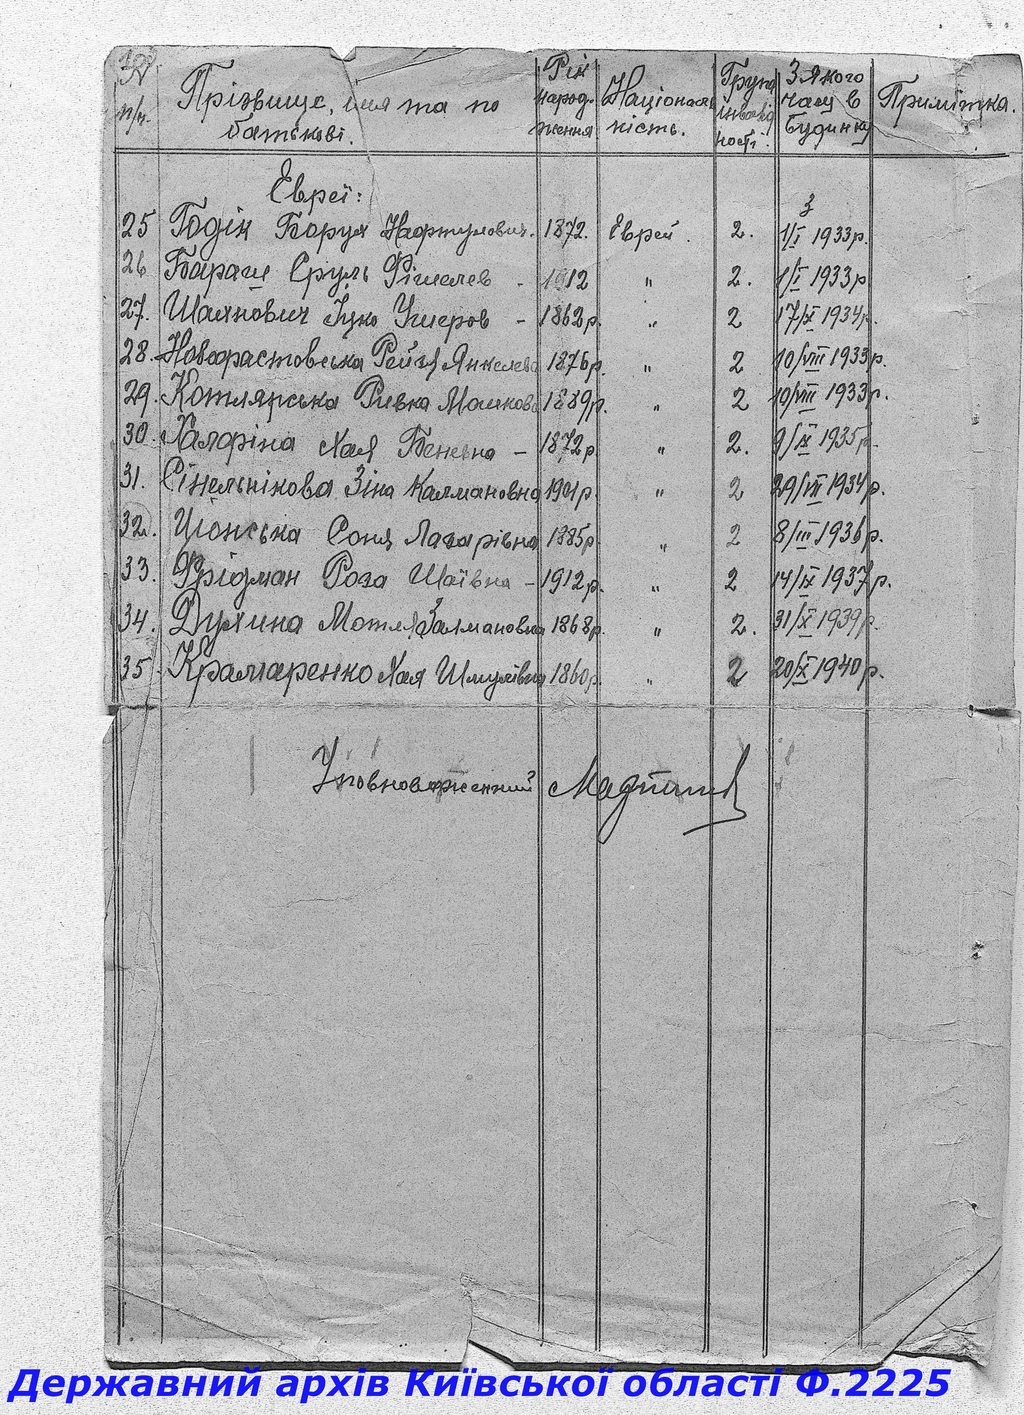 N п/п. Прізвище, імя та по батькові. Рік народження Національність. Група інвалідності. З якого часу в будинку Примітка.
Евреї:
25 Годік Борух Нафтулович. 1872. Еврей. 2. з 1/I 1933р.
26 Бараш Сруль Фішелев - 1912 " 2. 1/I 1933р
27. Шаянович Іцко Ушеров - 1862р. " 2 17/IX 1934р.
28. Новофастовська Рейзя Янкелева 1876р. " 2 10/VIII 1933р.
29. Котлярська Ривка Мошкова 1889р. " 2 10/VIII 1933р.
30. Хая - 1872р " 2. 9/IX 1935р.
31. Сінельнікова Зіна Калмановна 1901р. " 2 29/VII 1934р.
32. Соня Лазарівна 1885р. " 2 8/III 1936р.
33. Фрідман Роза Шаївна - 1912р. " 2 14/IX 1937р.
34. Духина Мотля Залмановна 1868р. " 2. 31/X 1939р.
35. Крамаренко Хая Шмулівна 1860р. " 2 20/X 1940р.
Уповноважений
Державний архів Київської області Ф.2225